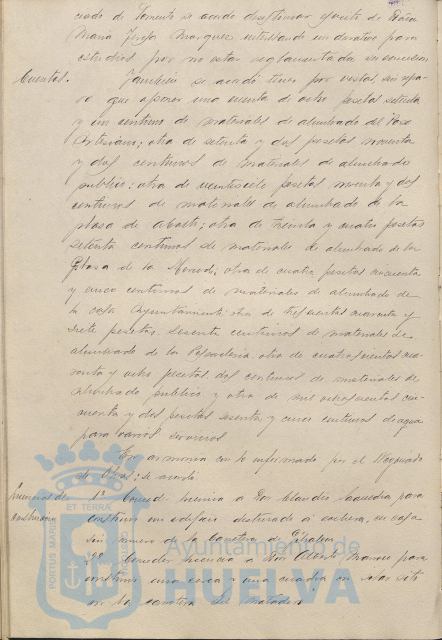 ciado de Fomento se acordó desestimar oficio de Doña
María Josefa Marquez solicitando un donativo para
estudios por no estar reglamentada su concesion
Cuentas.
Tambien se acordó tener por vistas, sin repa-
ro que oponer una cuenta de ocho pesetas setenta
y un centimo de materiales de alumbrado del Pozo
Artesiano; otra de setenta y dos pesetas noventa
y dos centimos de materiales de alumbrado
publico; otra de veintisiete pesetas noventa y dos
centimos de materiales de alumbrado de la
plaza de abasto; otra de treinta y cuatro pesetas
setenta centimos de materiales de alumbrado de la
Plaza de la Merced; otra de cuatro pesetas cincuenta
y cinco centimos de materiales de alumbrado de
la casa Ayuntamiento; otra de trescientas cuarenta y
siete pesetas, sesenta centimos de materiales de
alumbrado de la Pescaderia, otra de cuatrocientas cua-
renta y ocho pesetas dos centimos de materiales de
alumbrado publico y otra de mil ochocientas cin-
cuenta y dos pesetas sesenta y cinco centimos de agua
para varios servicios
En armonia con lo informado por el Negociado
de Obras, se acordó:
Licencias de
construccion
1º Conceder licencia a Don Claudio Saavedra para
construir un edificio destinado á cochera, en casa
sin numero de la Carretera de Gibraleon
2º Conceder licencia a Don Alberto Marco para
construir una casa y una cuadra en solar sito
en la carretera del matadero
PORTUS MARIS
ET TERRAE
Ayuntamiento de
HUELVA